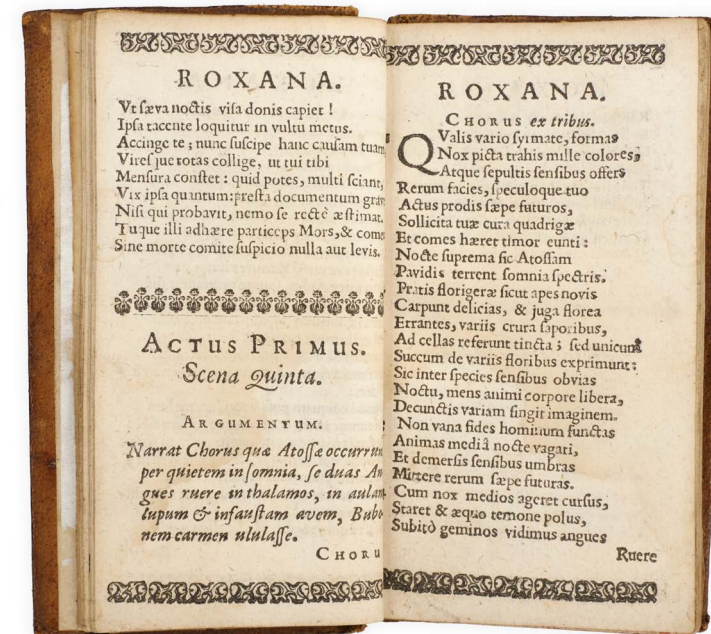 ROXANA.
Vt sæva noctis visa donis capiet !
Ipsa tacente loquitur in vultu metus.
Accinge te ; nunc suscipe hanc causam tuam
Viresque totas collige, ut tui tibi
Mensura constet : quid potes, multi sciant,
Vix ipsa quantum: præsta documentum grav
Nisi qui probavit, nemo se rectè æstimat.
Tuque illi adhære particeps Mors, & come
Sine morte comite suspicio nulla aut levis.
ACTUS PRIMUS.
Scena Quinta.
ARGUMENTUM.
Narrat Chorus quæ Atossæ occurrun
per quietem insomnia, se duas An
gues ruere in thalamos, in aulam
lupum & infaustam avem, Bubo
nem carmen ululasse.
CHORU
ROXANA.
CHORUS ex tribus.
QValis vario syrmate, formas
Nox picta trahis mille colores,
Atque sepultis sensibus offers
Rerum facies, speculoque tuo
Actus prodis sæpe futuros,
Sollicita tuæ cura quadrigæ
Et comes hæret timor eunti :
Nocte suprema sic Atossam
Pavidis terrent somnia spectris.
Pratis florigeræ sicut apes novis
Carpunt delicias, & juga florea
Errantes, variis crura saporibus,
Ad cellas referunt tincta ; sed unicum
Succum de variis floribus exprimunt :
Sic inter species sensibus obvias
Noctu, mens animi corpore libera,
Decunctis variam fingit imaginem.
Non vana fides hominum functas
Animas mediâ nocte vagari,
Et demersis sensibus umbras
Mittere rerum sæpe futuras.
Cum nox medios ageret cursus,
Staret & æquo temone polus,
Subitò geminos vidimus angues
Ruere